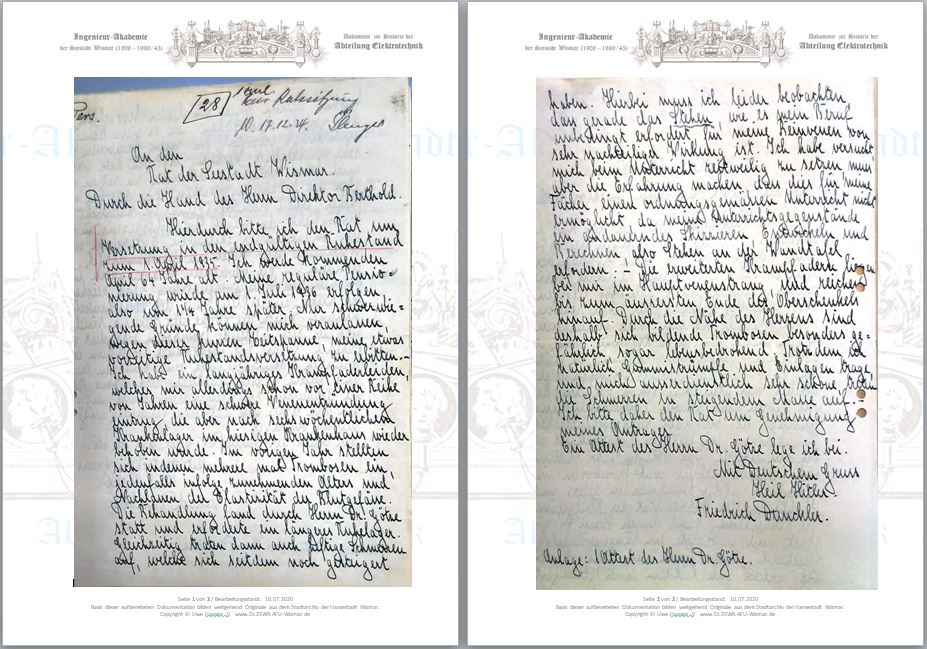 Ingenieur-Akademie
der Seestadt Wismar (1908 – 1939/45)
Dokumente zur Historie der
Abteilung Elektrotechnik
Pers.
28
zur Ratssitzung
17.12.34.
An den
Rat der Seestadt Wismar.
Durch die Hand des Herrn Direktor Berthold.
Hierdurch bitte ich den Rat um
Versetzung in den endgültigen Ruhestand
zum 1. April 1935. Ich werde kommenden
April 64 Jahre alt. Meine reguläre Pensio-
nierung würde am 1. Juli 1936 erfolgen
also um 1¼ Jahre später. Nur schwerwie-
gende Gründe können mich veranlassen,
wegen dieser kurzen Zeitspanne, meine etwas
vorzeitige Ruhestandsversetzung zu erbitten.–
Ich habe ein langjähriges Krampfaderleiden,
welches mir allerdings schon vor einer Reihe
von Jahren eine schwere Venenentzündung
eintrug, die aber nach sechswöchentlichem
Krankenlager im hiesigen Krankenhaus wieder
behoben wurde. Im vorigen Jahr stellten
sich indessen mehrere mal Trombosen ein,
jedenfalls infolge zunehmenden Alters und
Nachlassen der Elastizität der Blutgefässe.
Die Behandlung fand durch Herrn Dr. Götze
statt und erforderte ein längeres Ruhelager.
Gleichzeitig traten dann auch heftige Schmerzen
auf, welche sich seitdem noch gesteigert
Seite 1 von 2 / Bearbeitungsstand: 10.07.2020
Basis dieser aufbereiteten Dokumentation bilden weitgehend Originale aus dem Stadtarchiv der Hansestadt Wismar.
Copyright © Uwe www.DL2SWR.AFU-Wismar.de
Ingenieur-Akademie
der Seestadt Wismar (1908 – 1939/45)
Dokumente zur Historie der
Abteilung Elektrotechnik
haben. Hierbei muss ich leider beobachten
dass gerade das Stehen, wie es mein Beruf
unbedingt erfordert, für meine Beinvenen von
sehr nachteiliger Wirkung ist. Ich habe versucht
mich beim Unterricht zeitweilig zu setzen muss
aber die Erfahrung machen, dass dies für meine
Fächer einen ordnungsgemässen Unterricht nicht
ermöglicht, da meine Unterrichtsgegenstände
ein andauerndes Skizzieren Entwickeln und
Berechnen also Stehen an der Wandtafel
erfordern. – Die erweiterten Krampfadern liegen
bei mir im Hauptvenenstrang, und reichen
bis zum äussersten Ende des Oberschenkels
hinauf. Durch die Nähe des Herzens sind
deshalb sich bildende Trombosen besonders ge-
fährlich sogar lebensbedrohend. Trotzdem ich
natürlich Gummistrümpfe und Einlagen trage,
und mich ausserdienstlich sehr schone, treten
die Schmerzen in steigendem Masse auf. –
Ich bitte daher den Rat um Genehmigung
meines Antrages.
Ein Attest des Herrn Dr. Götze lege ich bei.
Mit Deutschem Gruss
Heil Hitler
Friedrich Danchler.
Anlage: 1 Attest des Herrn Dr. Götze.
Seite 2 von 2 / Bearbeitungsstand: 10.07.2020
Basis dieser aufbereiteten Dokumentation bilden weitgehend Originale aus dem Stadtarchiv der Hansestadt Wismar.
Copyright © Uwe www.DL2SWR.AFU-Wismar.de